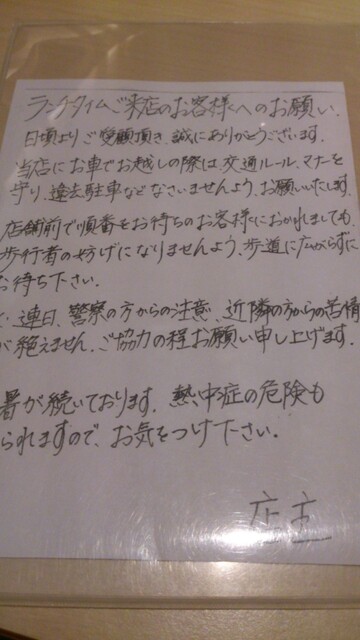 ランチタイムご来店のお客様へのお願い。
日頃よりご愛顧頂き、誠にありがとうございます。
当店にお車でお越しの際は、交通ルール、マナーを
守り、違法駐車などなさいませんよう、お願いいたします。
店舗前で順番をお待ちのお客様におかれましても、
歩行者の妨げになりませんよう、歩道に広がらずに
お待ち下さい。
連日、警察の方からの注意、近隣の方からの苦情
が絶えません。ご協力の程お願い申し上げます。
暑が続いております。熱中症の危険も
られますので、お気をつけ下さい。
店主